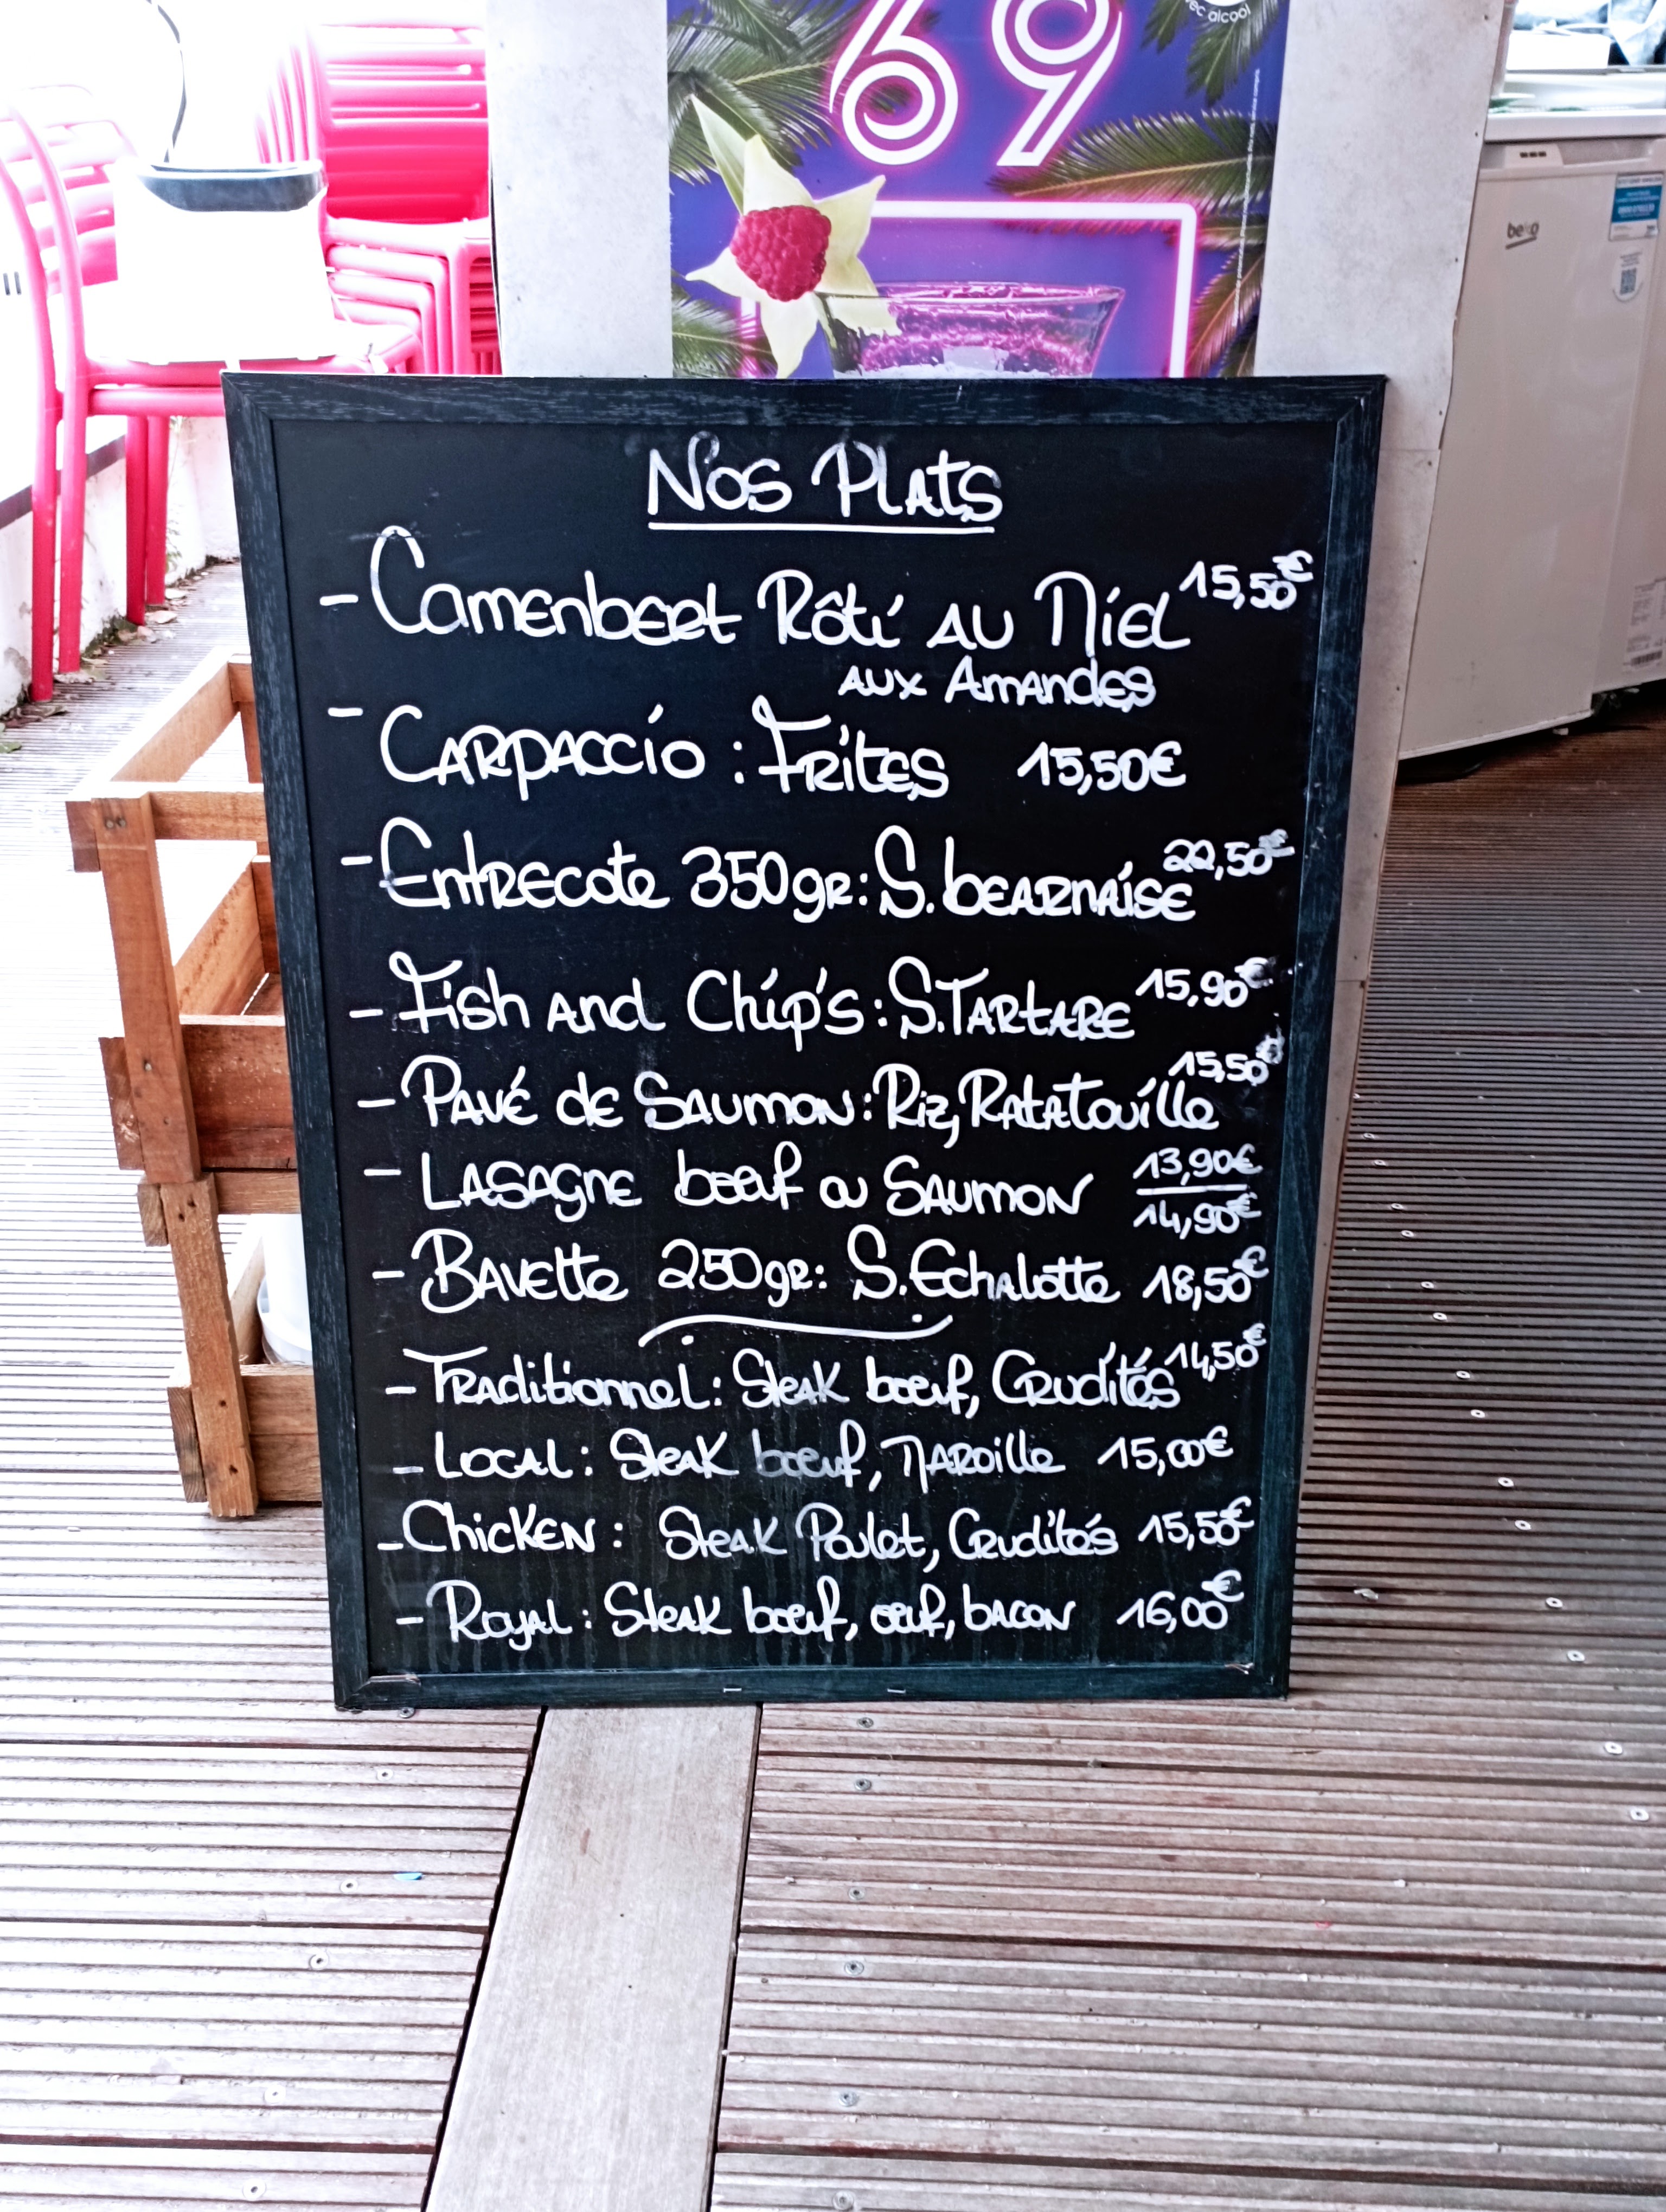 69
avec alcool
beko
Nos Plats
- Camenbert Rôti au Miel 15,50€
aux Amandes
- Carpaccio : Frites 15,50€
- Entrecote 350gr : S. bearnaise 22,50€
- Fish and Chip's : S. Tartare 15,90€
- Pavé de Saumon : Riz, Ratatouille 15,50€
- Lasagne boeuf ou Saumon 13,90€
14,90€
- Bavette 250gr : S. Echalotte 18,50€
- Traditionnel : Steak boeuf, Crudités 14,50€
- Local : Steak boeuf, Maroille 15,00€
- Chicken : Steak Poulet, Crudités 15,50€
- Royal : Steak boeuf, oeuf, bacon 16,00€